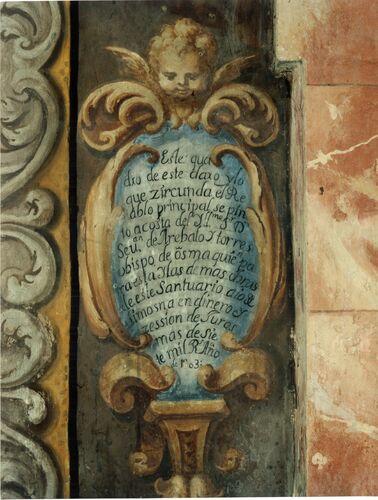 Este qua
dro de este claxo y lo
que zircunda el Re
tablo principal, se pin
to a costa del Ill.mo S.r D
Seu.an de Arebalo Y torres
obispo de osma quie pa
ra esta Y las demas obras
de este Santuario dio de
limosna en dinero y
zession de Juros
mas de sie
te mil R.s Año